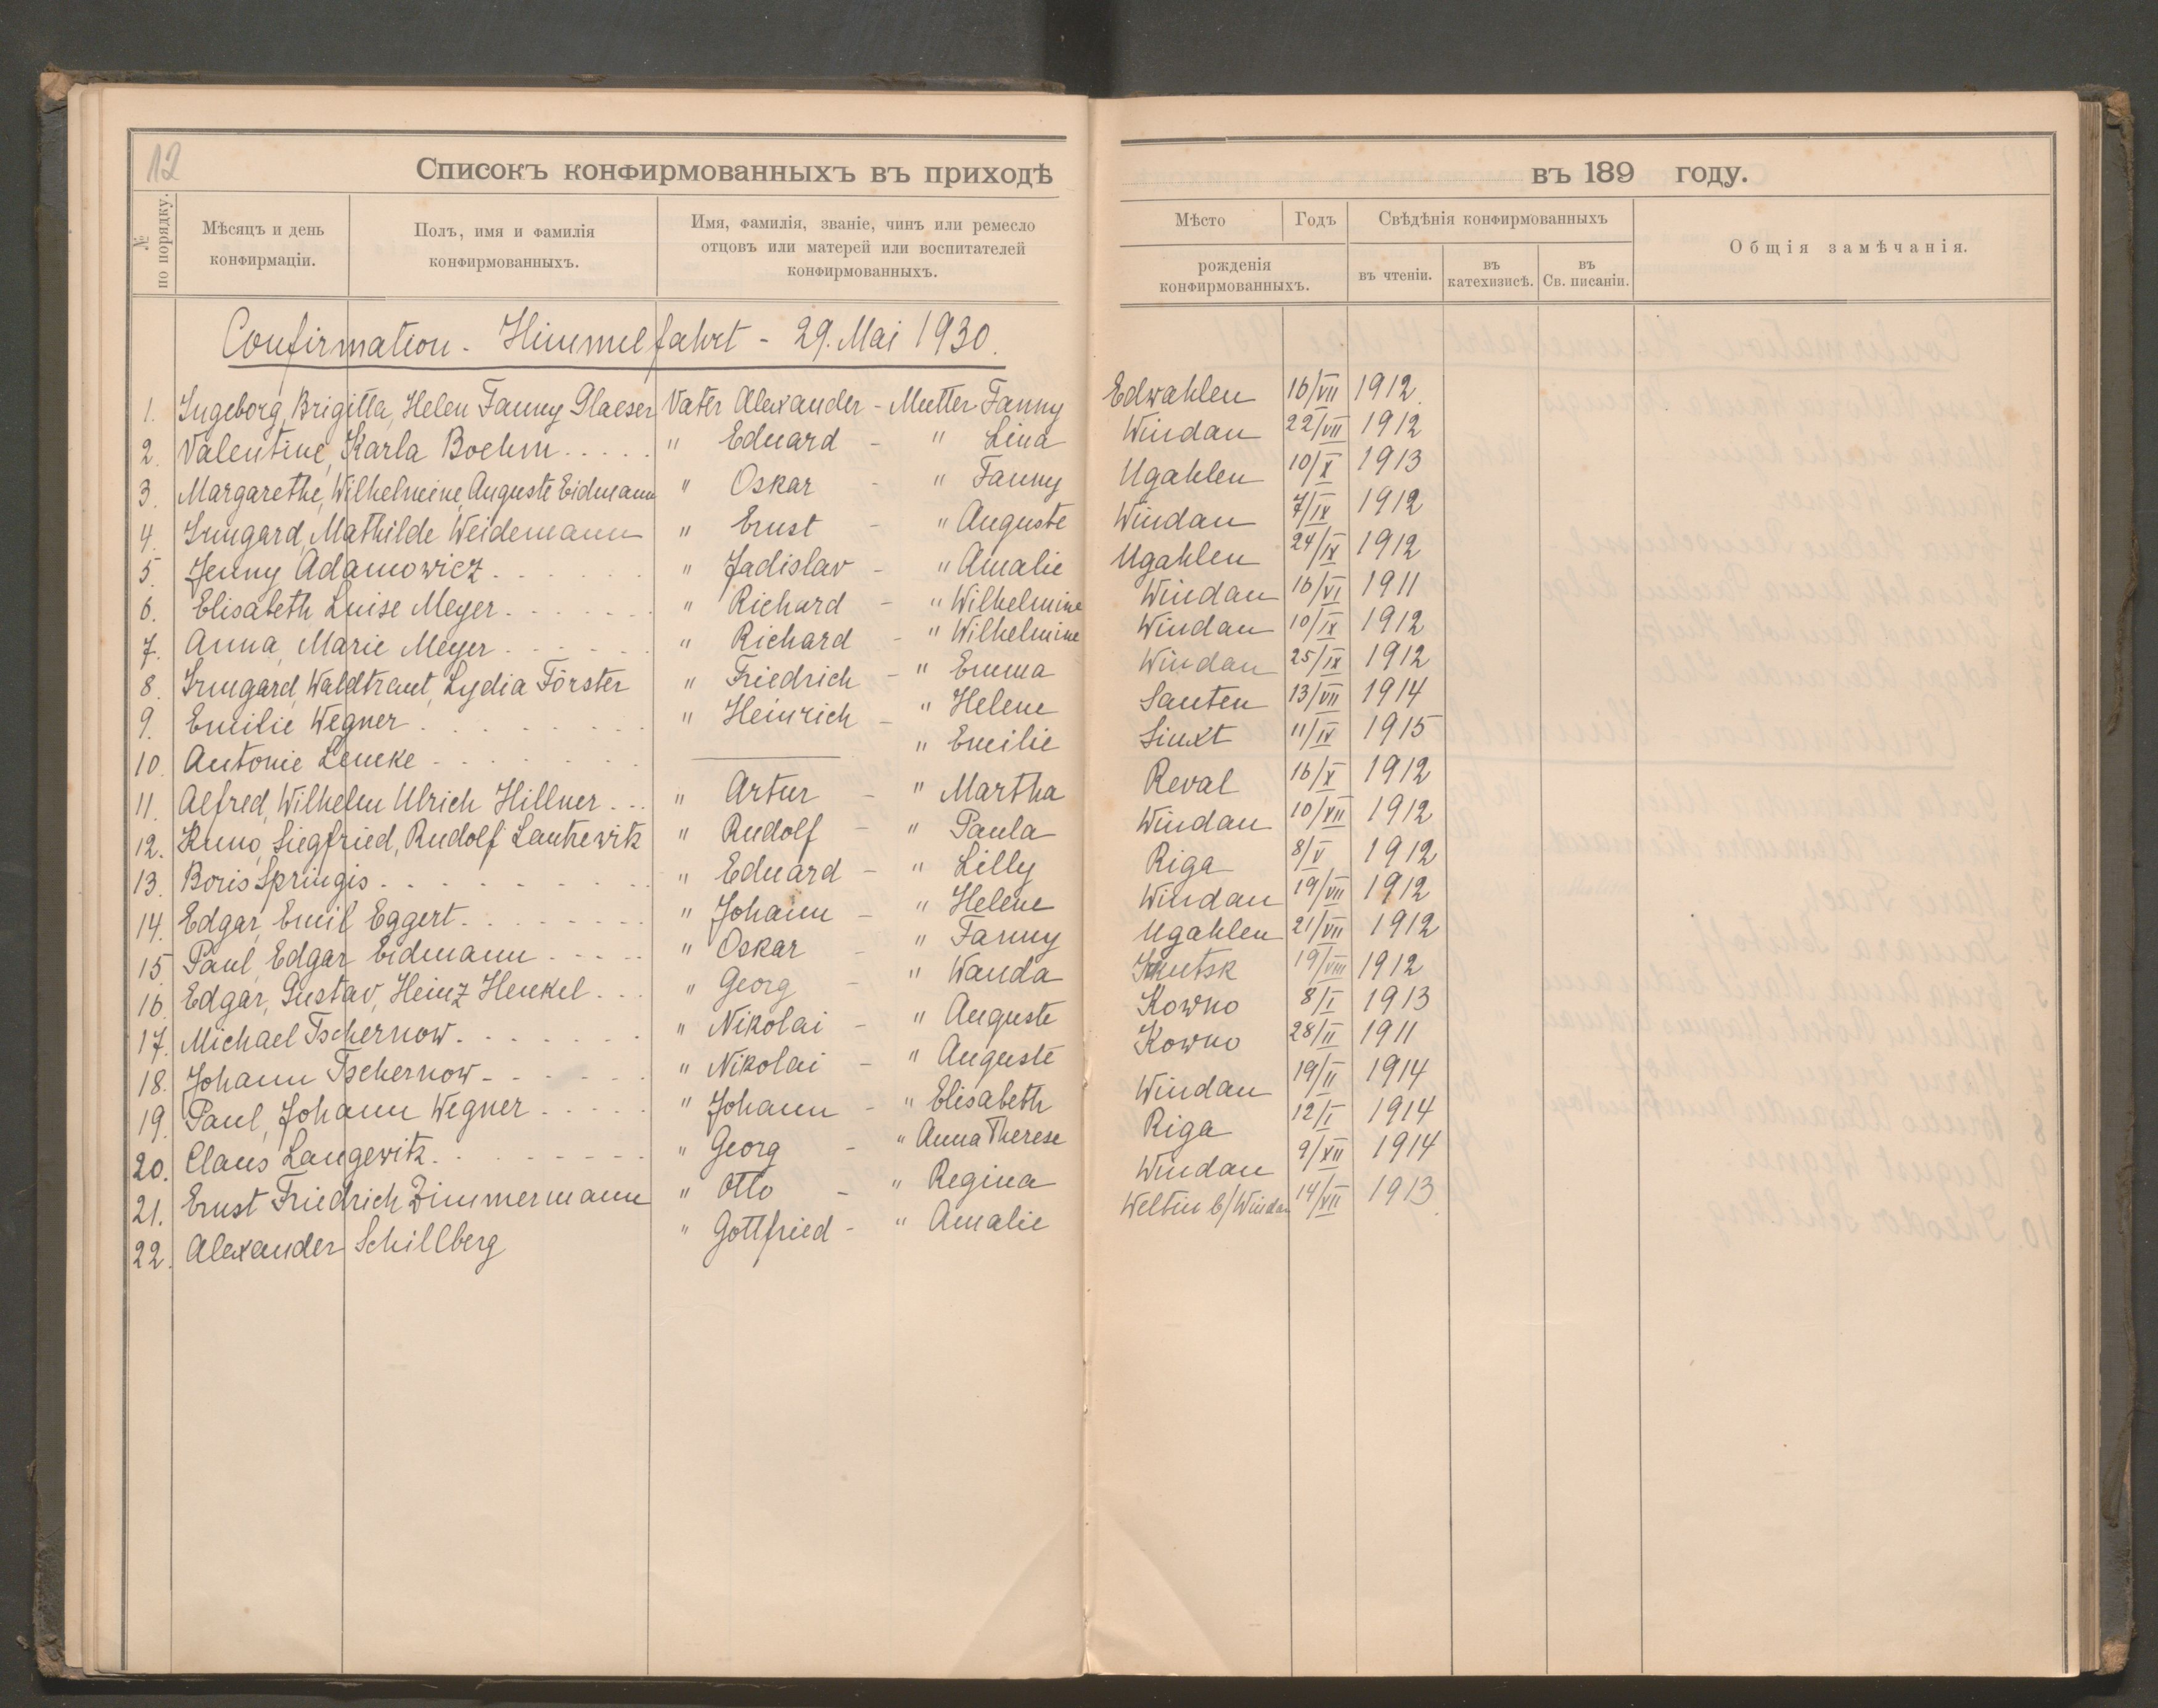 12
Списокъ конфирмованныхъ въ приходѣ въ 189 году.
№ по порядку.
Мѣсяцъ и день конфирмаціи.
Полъ, имя и фамилія конфирмованныхъ.
Имя, фамилія, званіе, чинъ или ремесло отцовъ или матерей или воспитателей конфирмованныхъ.
Мѣсто Годъ рожденія конфирмованныхъ.
Свѣдѣнія конфирмованныхъ
въ чтеніи. въ катехизисѣ. въ Св. писаніи.
Общія замѣчанія.
Confirmation - Himmelfahrt - 29. Mai 1930.
1. Ingeborg, Brigitta, Helen Fanny Glaeser Vater Alexander - Mutter Fanny Edwahlen 16/VII 1912.
2. Valentine, Karla Boehm..... " Eduard - " Lina Windau 22/VII 1912
3. Margarethe, Wilhelmine, Auguste Eidmann " Oskar - " Fanny Ugahlen 10/X 1913
4. Irmgard, Mathilde Weidemann " Ernst - " Auguste Windau 7/IX 1912
5. Jenny Adamowicz...... " Jadislav - " Amalie Ugahlen 24/IX 1912
6. Elisabeth, Luise Meyer...... " Richard - " Wilhelmine Windau 16/VI 1911
7. Anna, Marie Meyer...... " Richard - " Wilhelmine Windau 10/IX 1912
8. Irmgard, Waldtraut, Lydia Förster " Friedrich - " Emma Windau 25/IX 1912
9. Emilie Wegner........ " Heinrich - " Helene Santen 13/VII 1914
10. Antonie Lemke....... — " Emilie Siuxt 11/IX 1915
11. Alfred, Wilhelm Ulrich Hillner... " Artur - " Martha Reval 16/X 1912
12. Kuno, Siegfried, Rudolf Lankewitz " Rudolf - " Paula Windau 10/XII 1912
13. Boris Springis......... " Eduard - " Lilly Riga 8/V 1912
14. Edgar, Emil Eggert....... " Johann - " Helene Windau 19/VII 1912
15. Paul, Edgar Eidmann..... " Oskar - " Fanny Ugahlen 21/VII 1912
16. Edgar, Gustav, Heinz Henkel... " Georg - " Wanda 19/VIII 1912
17. Michael Tschernow....... " Nikolai - " Auguste Kowno 8/I 1913
18. Johann Tschernow...... " Nikolai - " Auguste Kowno 28/II 1911
19. Paul, Johann Wegner..... " Johann - " Elisabeth Windau 19/II 1914
20. Claus Langewitz........ " Georg - " Anna Therese Riga 12/I 1914
21. Ernst Friedrich Zimmermann " Otto - " Regina Windau 9/XII 1914
22. Alexander Schillberg " Gottfried - " Amalie Weltin b/Windau 14/VII 1913.